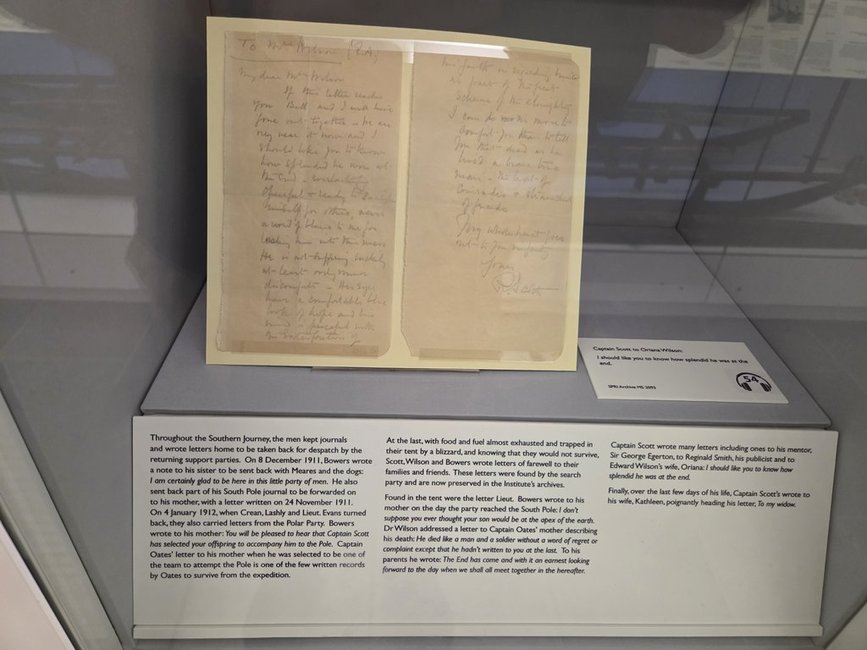 To Mrs Wilson
My dear Mrs Wilson
If this letter reaches
you Bill and I will have
gone out together – We are
very near it now and I
should like you to know
how splendid he was at
the end – everlastingly
cheerful & ready to sacrifice
himself for others, never
a word of blame to me for
leading him into this mess
He is not suffering luckily
at least only minor
discomforts – His eyes
have a comfortable blue
look of hope and his
mind is peaceful with
the satisfaction of
his faith in regarding himself
as part of the great
scheme of the Almighty
I can do no more to
comfort you than to tell
you that he died as he
lived a brave true
man – the best of
comrades & staunchest
of friends
My whole heart goes
out to you in pity
Yours
R. Scott
Captain Scott to Oriana Wilson:
I should like you to know how splendid he was at the
end.
SPRI Archive MS
54
Throughout the Southern Journey, the men kept journals
and wrote letters home to be taken back for despatch by the
returning support parties. On 8 December 1911, Bowers wrote
a note to his sister to be sent back with Meares and the dogs:
I am certainly glad to be here in this little party of men. He also
sent back part of his South Pole journal to be forwarded on
to his mother, with a letter written on 24 November 1911.
On 4 January 1912, when Crean, Lashly and Lieut. Evans turned
back, they also carried letters from the Polar Party. Bowers
wrote to his mother: You will be pleased to hear that Captain Scott
has selected your offspring to accompany him to the Pole. Captain
Oates' letter to his mother when he was selected to be one of
the team to attempt the Pole is one of the few written records
by Oates to survive from the expedition.
At the last, with food and fuel almost exhausted and trapped in
their tent by a blizzard, and knowing that they would not survive,
Scott, Wilson and Bowers wrote letters of farewell to their
families and friends. These letters were found by the search
party and are now preserved in the Institute's archives.
Found in the tent were the letter Lieut. Bowers wrote to his
mother on the day the party reached the South Pole: I don't
suppose you ever thought your son would be at the apex of the earth.
Dr Wilson addressed a letter to Captain Oates' mother describing
his death: He died like a man and a soldier without a word of regret or
complaint except that he hadn't written to you at the last. To his
parents he wrote: The End has come and with it an earnest looking
forward to the day when we shall all meet together in the hereafter.
Captain Scott wrote many letters including ones to his mentor,
Sir George Egerton, to Reginald Smith, his publicist and to
Edward Wilson's wife, Oriana: I should like you to know how
splendid he was at the end.
Finally, over the last few days of his life, Captain Scott's wrote to
his wife, Kathleen, poignantly heading his letter, To my widow.